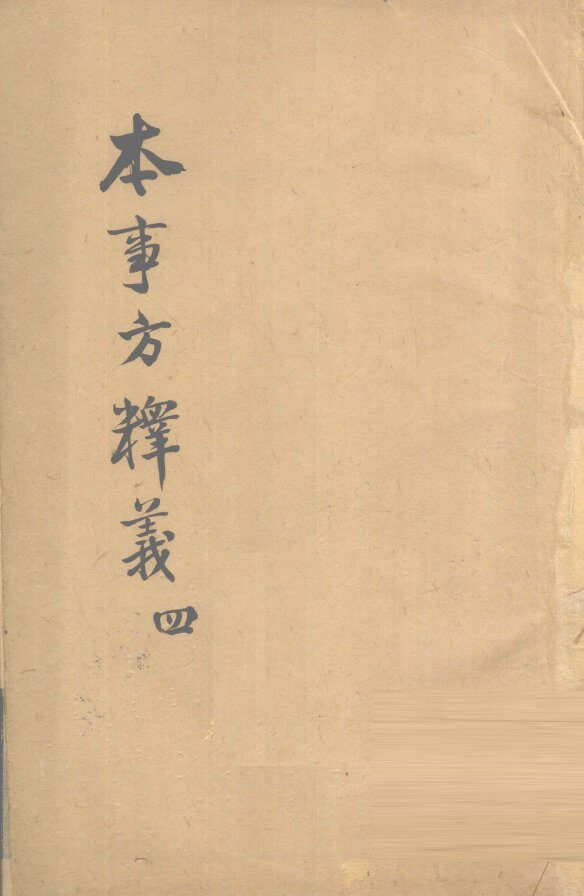 本事方釋義 四